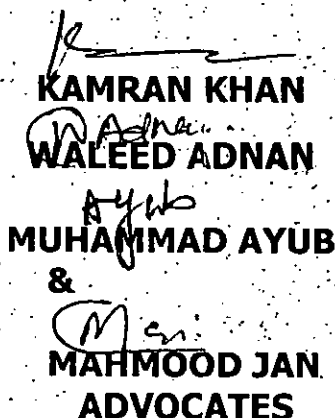 KAMRAN KHAN
W Adnan
WALEED ADNAN
Ayub
MUHAMMAD AYUB
&
MAHMOOD JAN
ADVOCATES